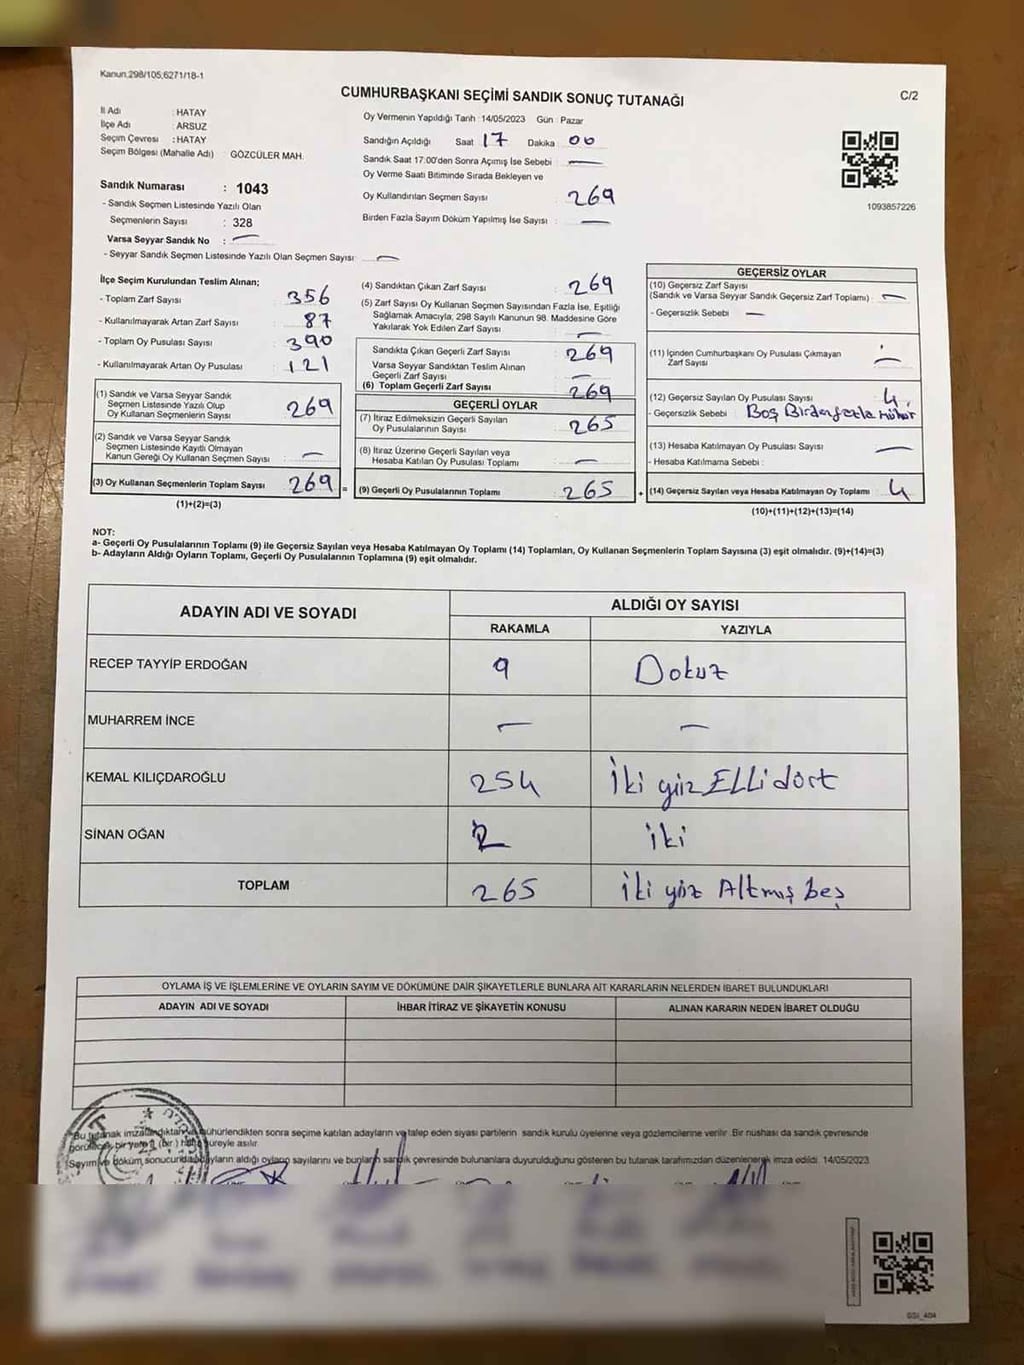 Kanun.298/105;6271/18-1
CUMHURBAŞKANI SEÇİMİ SANDIK SONUÇ TUTANAĞI
C/2
İl Adı : HATAY
İlçe Adı : ARSUZ
Seçim Çevresi : HATAY
Seçim Bölgesi (Mahalle Adı) : GÖZCÜLER MAH.
Sandık Numarası : 1043
- Sandık Seçmen Listesinde Yazılı Olan
Seçmenlerin Sayısı : 328
Varsa Seyyar Sandık No : —
- Seyyar Sandık Seçmen Listesinde Yazılı Olan Seçmen Sayısı : —
Oy Vermenin Yapıldığı Tarih : 14/05/2023 Gün : Pazar
Sandığın Açıldığı Saat 17 Dakika 00
Sandık Saat 17:00'den Sonra Açımış İse Sebebi : —
Oy Verme Saati Bitiminde Sırada Bekleyen ve
Oy Kullandırılan Seçmen Sayısı : 269
Birden Fazla Sayım Döküm Yapılmış İse Sayısı : —
1093857226
İlçe Seçim Kurulundan Teslim Alınan;
- Toplam Zarf Sayısı : 356
- Kullanılmayarak Artan Zarf Sayısı : 87
- Toplam Oy Pusulası Sayısı : 390
- Kullanılmayarak Artan Oy Pusulası : 121
(1) Sandık ve Varsa Seyyar Sandık
Seçmen Listesinde Yazılı Olup
Oy Kullanan Seçmenlerin Sayısı : 269
(2) Sandık ve Varsa Seyyar Sandık
Seçmen Listesinde Kayıtlı Olmayan
Kanun Gereği Oy Kullanan Seçmen Sayısı : —
(3) Oy Kullanan Seçmenlerin Toplam Sayısı : 269 =
(1)+(2)=(3)
(4) Sandıktan Çıkan Zarf Sayısı : 269
(5) Zarf Sayısı Oy Kullanan Seçmen Sayısından Fazla İse, Eşitliği
Sağlamak Amacıyla, 298 Sayılı Kanunun 98. Maddesine Göre
Yakılarak Yok Edilen Zarf Sayısı : —
Sandıkta Çıkan Geçerli Zarf Sayısı : 269
Varsa Seyyar Sandıktan Teslim Alınan
Geçerli Zarf Sayısı : —
(6) Toplam Geçerli Zarf Sayısı : 269
GEÇERLİ OYLAR
(7) İtiraz Edilmeksizin Geçerli Sayılan
Oy Pusulalarının Sayısı : 265
(8) İtiraz Üzerine Geçerli Sayılan veya
Hesaba Katılan Oy Pusulası Toplamı : —
(9) Geçerli Oy Pusulalarının Toplamı : 265 +
GEÇERSİZ OYLAR
(10) Geçersiz Zarf Sayısı
(Sandık ve Varsa Seyyar Sandık Geçersiz Zarf Toplamı) : —
- Geçersizlik Sebebi : —
(11) İçinden Cumhurbaşkanı Oy Pusulası Çıkmayan
Zarf Sayısı : —
(12) Geçersiz Sayılan Oy Pusulası Sayısı : 4
- Geçersizlik Sebebi : Boş Birden fazla mühür
(13) Hesaba Katılmayan Oy Pusulası Sayısı : —
- Hesaba Katılmama Sebebi :
(14) Geçersiz Sayılan veya Hesaba Katılmayan Oy Toplamı : 4
(10)+(11)+(12)+(13)=(14)
NOT:
a- Geçerli Oy Pusulalarının Toplamı (9) ile Geçersiz Sayılan veya Hesaba Katılmayan Oy Toplamı (14) Toplamları, Oy Kullanan Seçmenlerin Toplam Sayısına (3) eşit olmalıdır. (9)+(14)=(3)
b- Adayların Aldığı Oyların Toplamı, Geçerli Oy Pusulalarının Toplamına (9) eşit olmalıdır.
ADAYIN ADI VE SOYADI ALDIĞI OY SAYISI
RAKAMLA YAZIYLA
RECEP TAYYİP ERDOĞAN 9 Dokuz
MUHARREM İNCE — —
KEMAL KILIÇDAROĞLU 254 İki yüz ELLi dört
SİNAN OĞAN 2 iki
TOPLAM 265 iki yüz Altmış beş
OYLAMA İŞ VE İŞLEMLERİNE VE OYLARIN SAYIM VE DÖKÜMÜNE DAİR ŞİKAYETLERLE BUNLARA AİT KARARLARIN NELERDEN İBARET BULUNDUKLARI
ADAYIN ADI VE SOYADI İHBAR İTİRAZ VE ŞİKAYETİN KONUSU ALINAN KARARIN NEDEN İBARET OLDUĞU
Bu tutanak imzalandıktan ve mühürlendikten sonra seçime katılan adayların ve talep eden siyasi partilerin sandık kurulu üyelerine veya gözlemcilerine verilir. Bir nüshası da sandık çevresinde
görülecek bir yere ( bir ) hafta süreyle asılır.
Sayım ve döküm sonucunda adayların aldığı oyların sayılarını ve bunların sandık çevresinde bulunanlara duyurulduğunu gösteren bu tutanak tarafımızdan düzenlenerek imza edildi. 14/05/2023